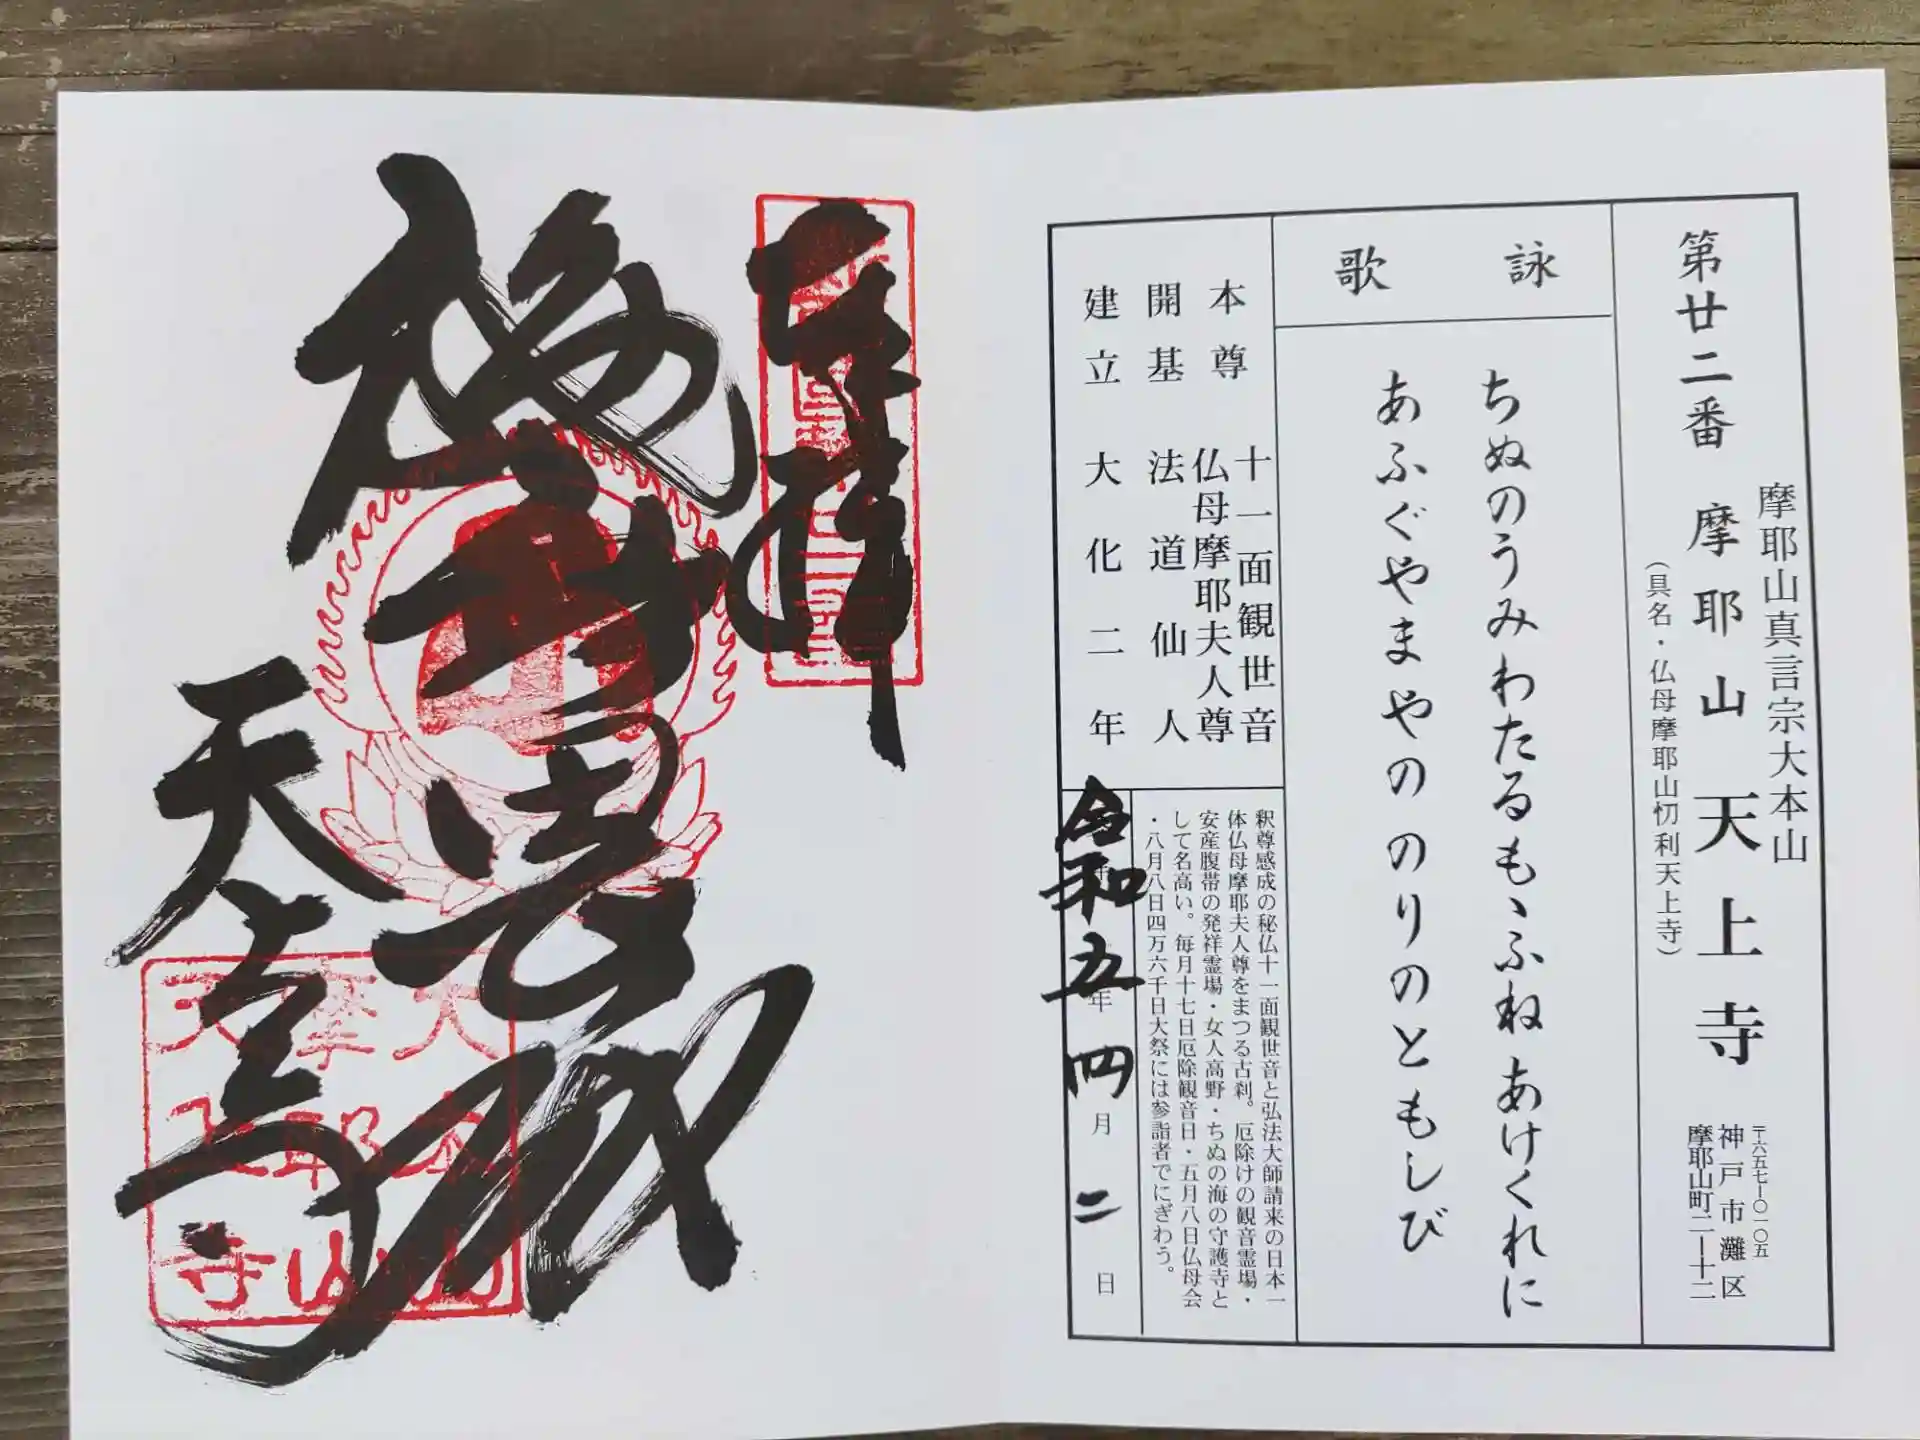 第廿二番 摩耶山 天上寺
摩耶山真言宗大本山
(具名・仏母摩耶山忉利天上寺)
〒六五七ー〇一〇五
神戸市灘区
摩耶山町二ー十二
詠歌
ちぬのうみわたるもゝふね あけくれに
あふぐやまやの のりのともしび
本尊 十一面観世音
仏母摩耶夫人尊
開基 法道仙人
建立 大化二年
釈尊感成の秘仏十一面観世音と弘法大師請来の日本一
体仏母摩耶夫人尊をまつる古刹。厄除けの観音霊場・
安産腹帯の発祥霊場・女人高野・ちぬの海の守護寺と
して名高い。毎月十七日厄除観音日・五月八日仏母会
・八月八日四万六千日大祭には参詣者でにぎわう。
令和五年四月二日
奉拝
天上寺
大本山
摩耶山
天上寺